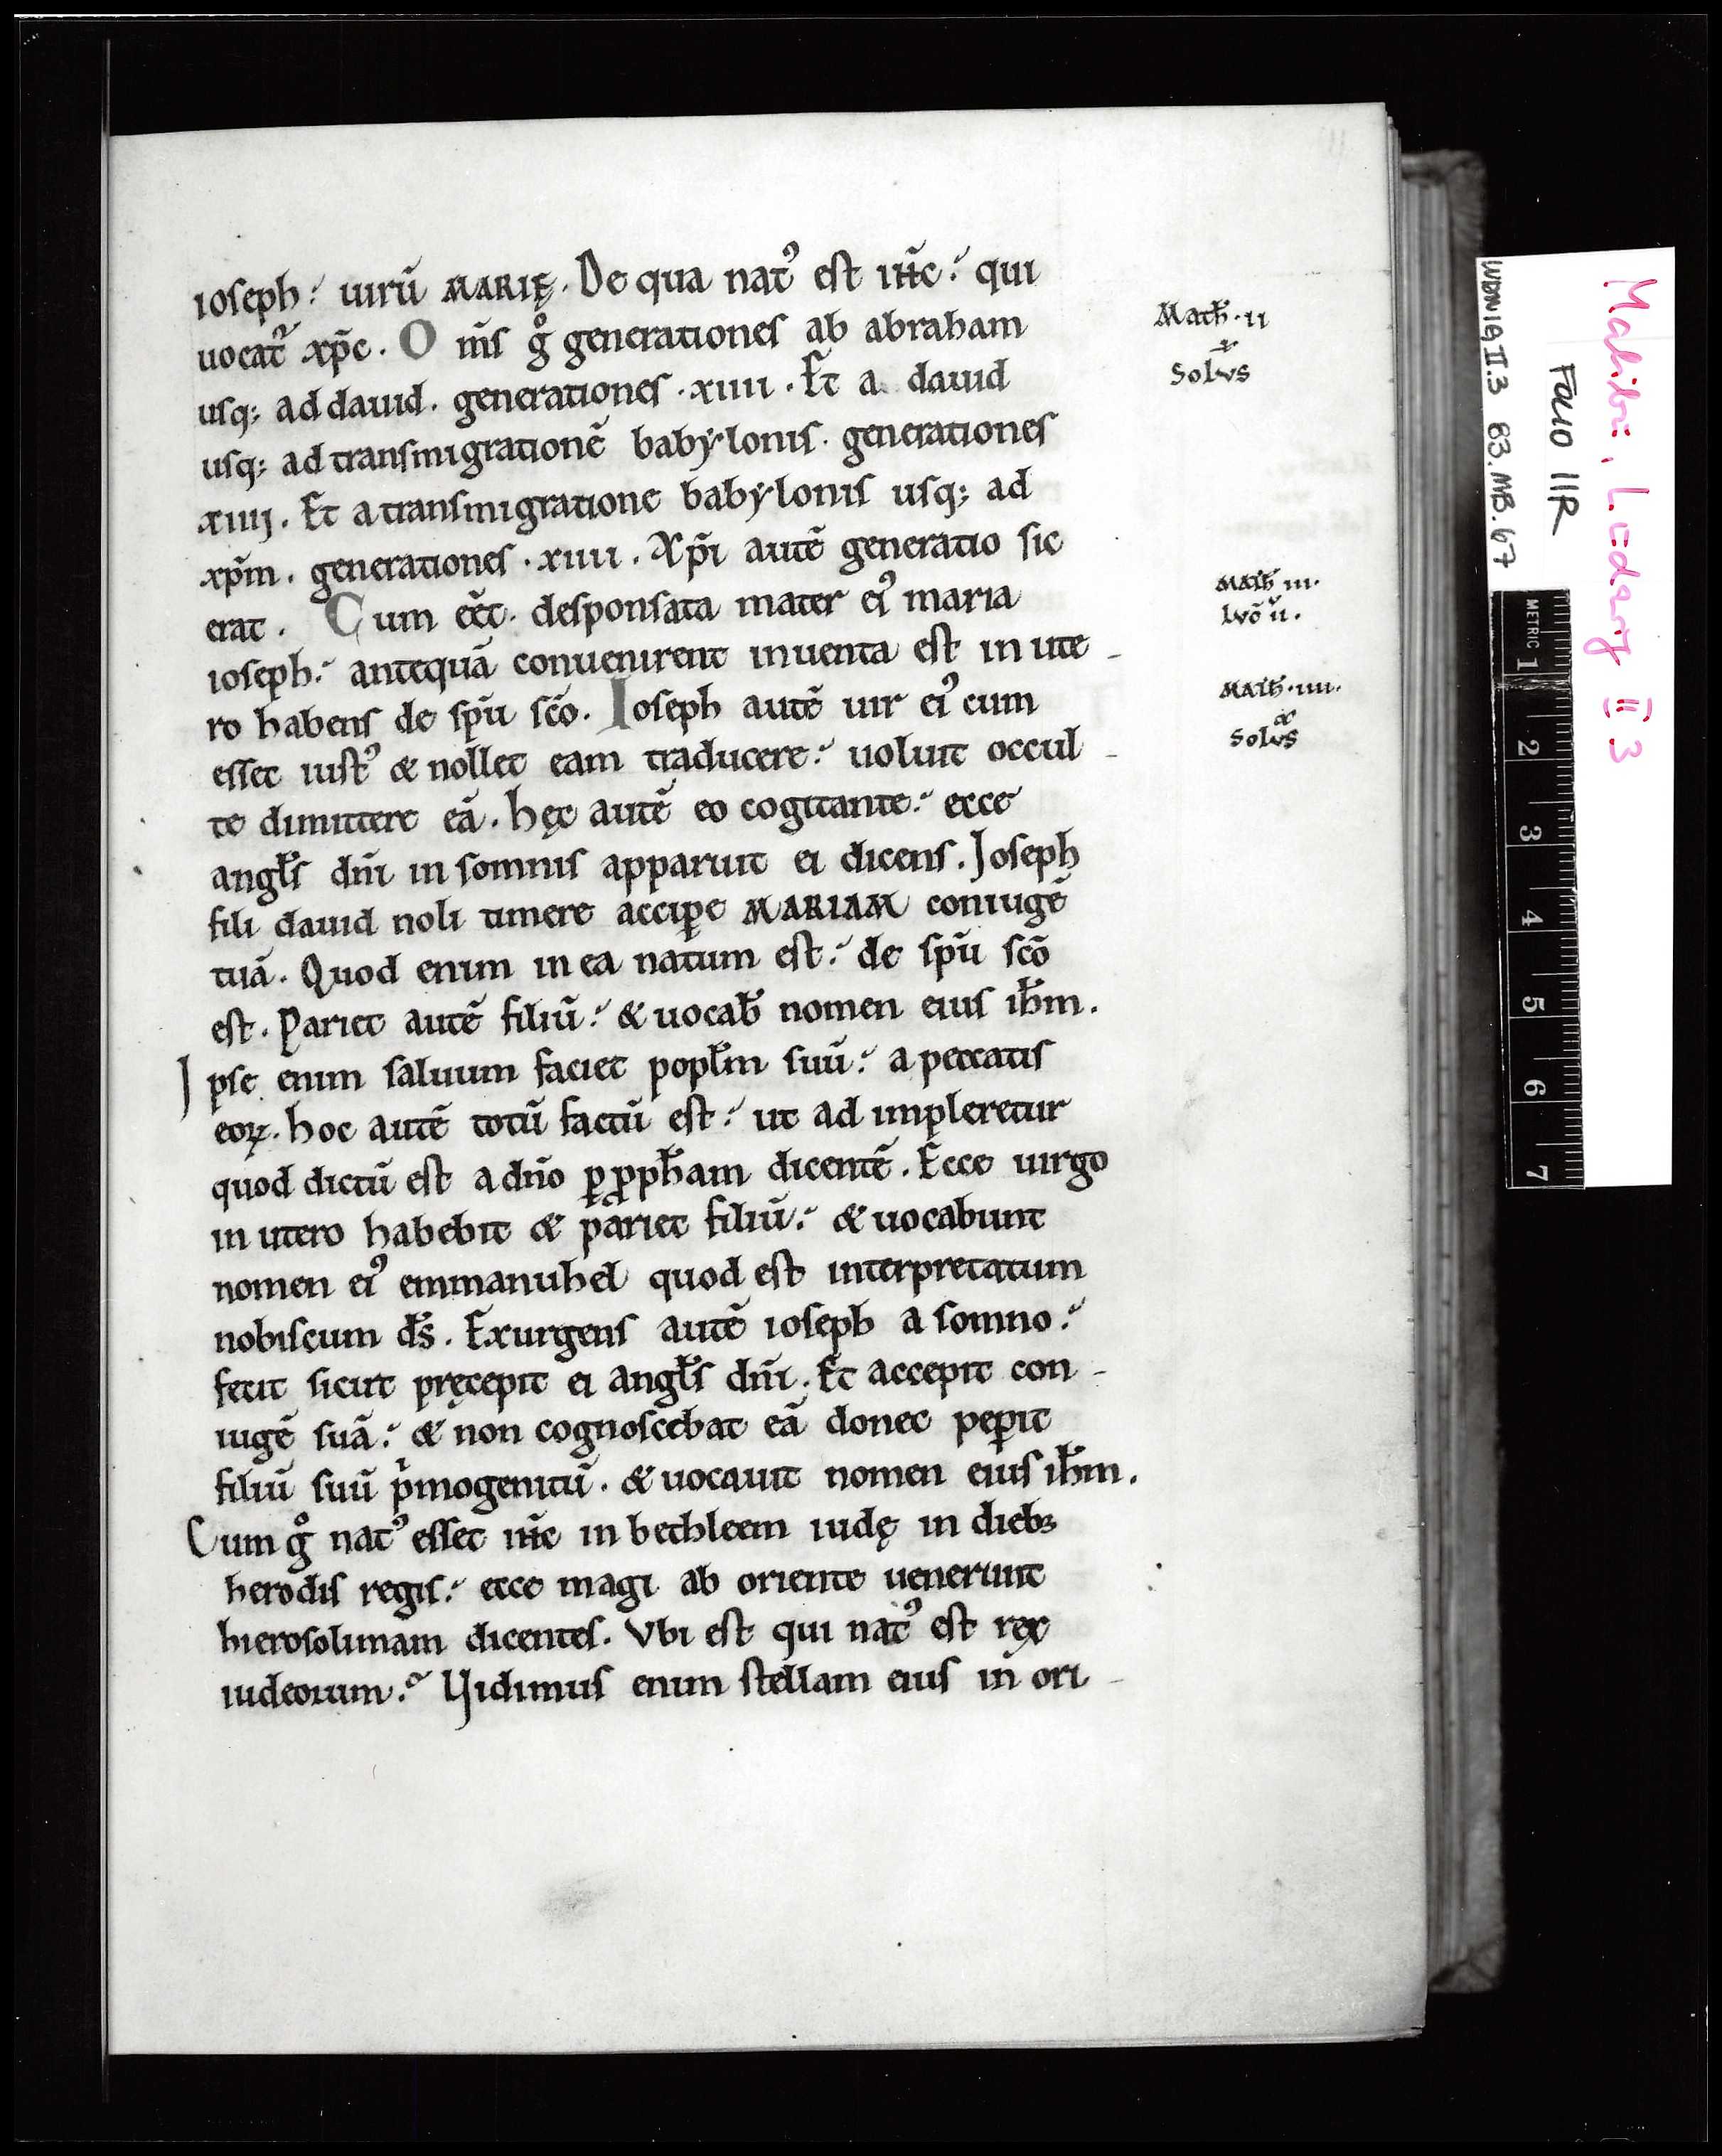 ioseph: uirũ MARIĘ. De qua nat᾿ est ih̃c: qui
uocat᷑ xp̃c. O m̃s g̊ generationes ab abraham
usq; ad dauid. generationes .xiiii. Et a dauid
usq; ad transmigrationẽ babylonis. generationes
xiiij. Et a transmigratione babylonis usq; ad
xp̃m. generationes .xiiii. Xp̃i autẽ generatio sic
erat. Cum eẽt desponsata mater ei᾿ maria
ioseph: antequã conuenirent inuenta est in ute-
ro habens de sp̃u sc̃o. Ioseph autẽ uir ei᾿ cum
esset iust᾿ & nollet eam traducere: uoluit occul-
te dimittere eã. hęc autẽ eo cogitante: ecce
angl̃s dñi in somnis apparuit ei dicens. Joseph
fili dauid noli timere accip̱e MARIAM coniugẽ
tuã. Quod enim in ea natum est: de sp̃u sc̃o
est. Pariet autẽ filiũ: & uocab̃ nomen eius ih̃m.
Jpse enim saluum faciet popl̃m suũ: a peccatis
eoꝝ. hoc autẽ totũ factũ est: ut ad impleretur
quod dictũ est a dño ꝑ ꝓph̃am dicentẽ. Ecce uirgo
in utero habebit & pariet filiũ: & uocabunt
nomen ei᾿ emmanuhel quod est interpretatum
nobiscum d̃s. Exurgens autẽ ioseph a somno:
fecit sicut pręcepit ei angl̃s dñi. Et accepit con-
iugẽ suã: & non cognoscebat eã donec peꝑit
filiũ suũ pͥmogenitũ. & uocauit nomen eius ih̃m.
Cum g̊ nat᾿ esset ih̃c in bethleem iudę in dieb;
herodis regis: ecce magi ab oriente uenerunt
hierosolimam dicentes. Vbi est qui nat᾿ est rex
iudeorum? Uidimus enim stellam eius in ori-
Math̃.ii
x
Solvs
Math̃ iii.
lvc̃ ii.
Math̃.iiii.
x
Solvs
Malibu, Ludwig II 3
FOLIO 11R
LUDWIG II.3 83.MB.67
METRIC 1 2 3 4 5 6 7